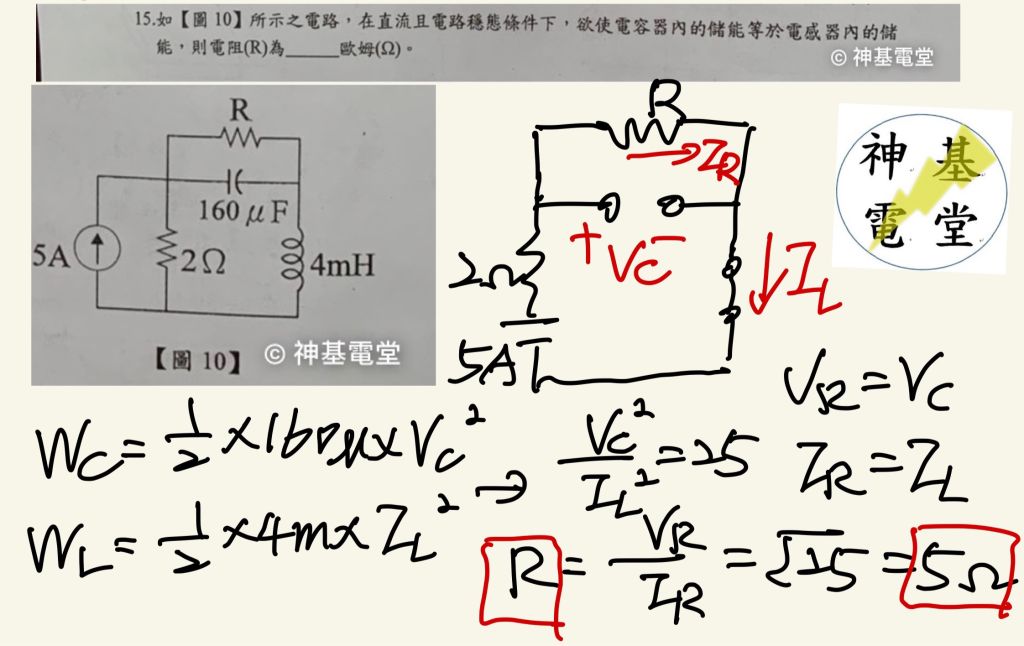 15.如【圖 10】所示之電路，在直流且電路穩態條件下，欲使電容器內的儲能等於電感器內的儲
能，則電阻(R)為_____歐姆(Ω)。
© 神基電堂
R
160 μF
5A
2Ω
4mH
【圖 10】
© 神基電堂
R
I_R
+ Vc −
2Ω
I_L
5A
神 基
電 堂
V_R = Vc
Wc = 1/2 × 160μ × Vc²
→ Vc²/I_L² = 25
I_R = I_L
W_L = 1/2 × 4m × I_L²
R = V_R/I_R = √25 = 5Ω